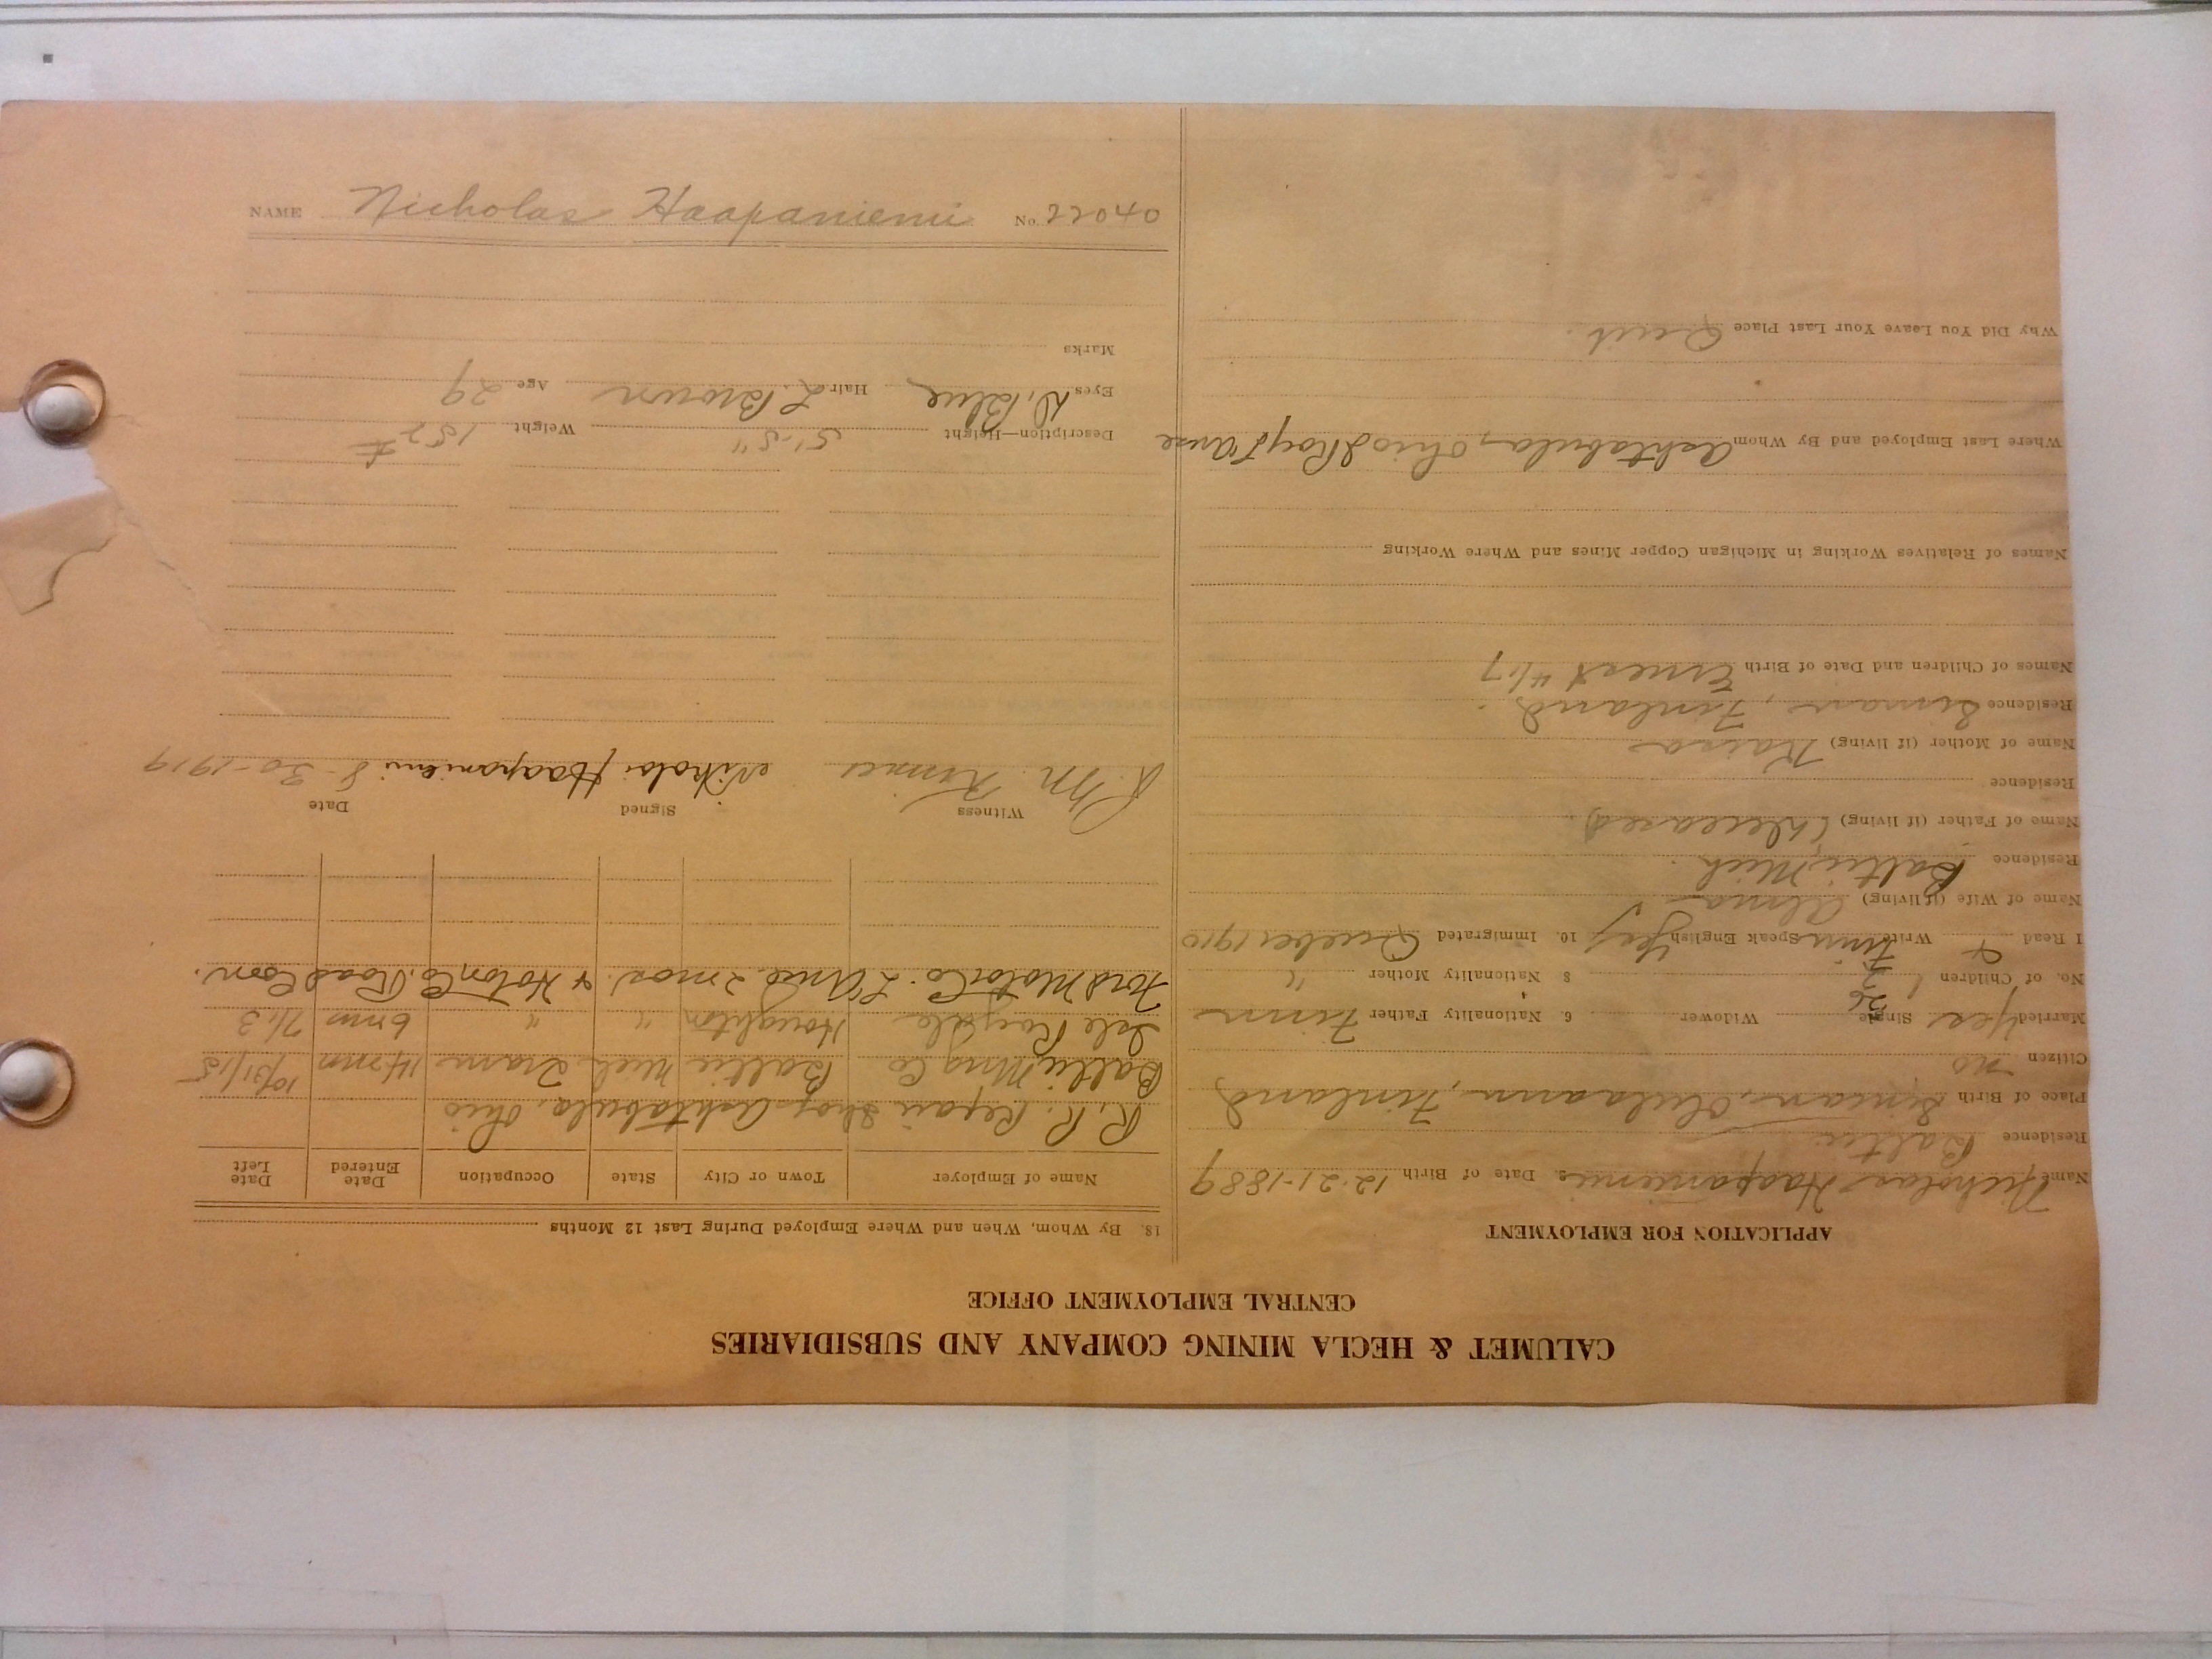 CALUMET & HECLA MINING COMPANY AND SUBSIDIARIES
CENTRAL EMPLOYMENT OFFICE
APPLICATION FOR EMPLOYMENT
Name Nicholas Haapaniemi 5. Date of Birth 12-21-1889
Residence Baltic
Place of Birth Simoan, Finland
Citizen no
Married Yes Single Widower 6. Nationality Father Finn
No. of Children 1 8 Nationality Mother "
I Read & Write Finn Speak English Yes 10. Immigrated 1910
Name of Wife (if living) Alma
Residence Baltic, Mich.
Name of Father (if living) (deceased)
Residence
Name of Mother (if living) Kaisa
Residence Finland
Names of Children and Date of Birth Ernest 4/17
Names of Relatives Working in Michigan Copper Mines and Where Working
Where Last Employed and By Whom Ashtabula, Ohio
Why Did You Leave Your Last Place Quit.
18. By Whom, When and Where Employed During Last 12 Months
Name of Employer Town or City State Occupation Date Entered Date Left
R. R. Repair Shop Ashtabula, Ohio
Baltic Mng Co Baltic Mich Tram 14 mn 10/31/15
Isle Royale Houghton " " 6 mn 7/13
Ford Motor Co. L'Anse 2 mos. & Hoton Co. Road Com.
Witness Signed Date
Nikolai Haapaniemi 8-30-1919
Description—Height 5'-5" Weight 152 #
Eyes D. Blue Hair L. Brown Age 29
Marks
NAME Nicholas Haapaniemi No. 22040